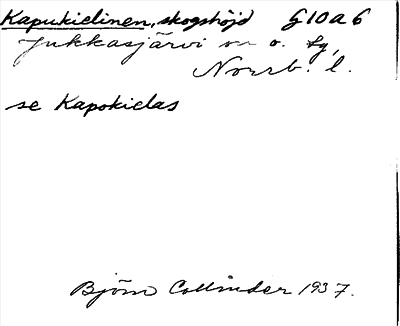 Kapukielinen, skogshöjd G10A6
Jukkasjärvi sn o. tg,
Norrb. l.
se Kapokielas
Björn Collinder 1937.